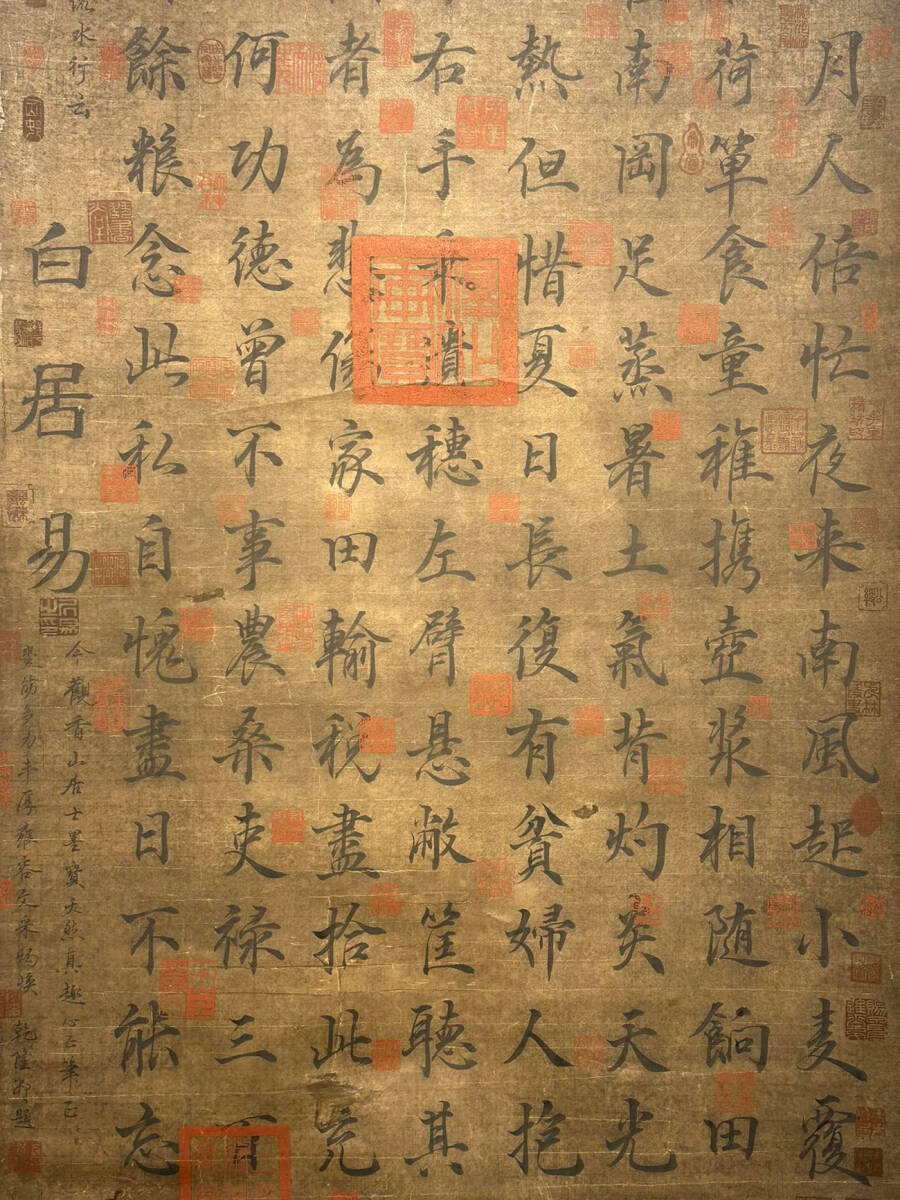 月人倍忙夜来南風起小麦覆
荷箪食童稚携壺浆相随餉田
南岡足蒸暑土氣背灼炎天光
熱但惜夏日長復有貧婦人抱
右手秉遺穗左臂悬敝筐聽其
者為悲傷家田輸税盡拾此充
何功德曾不事農桑吏禄三百
餘粮念此私自愧盡日不能忘
流水行云
白居易
今觀香山居士墨寶天然真趣心正筆正
豐筋多力丰厚雍容文采暢懷 乾隆御題